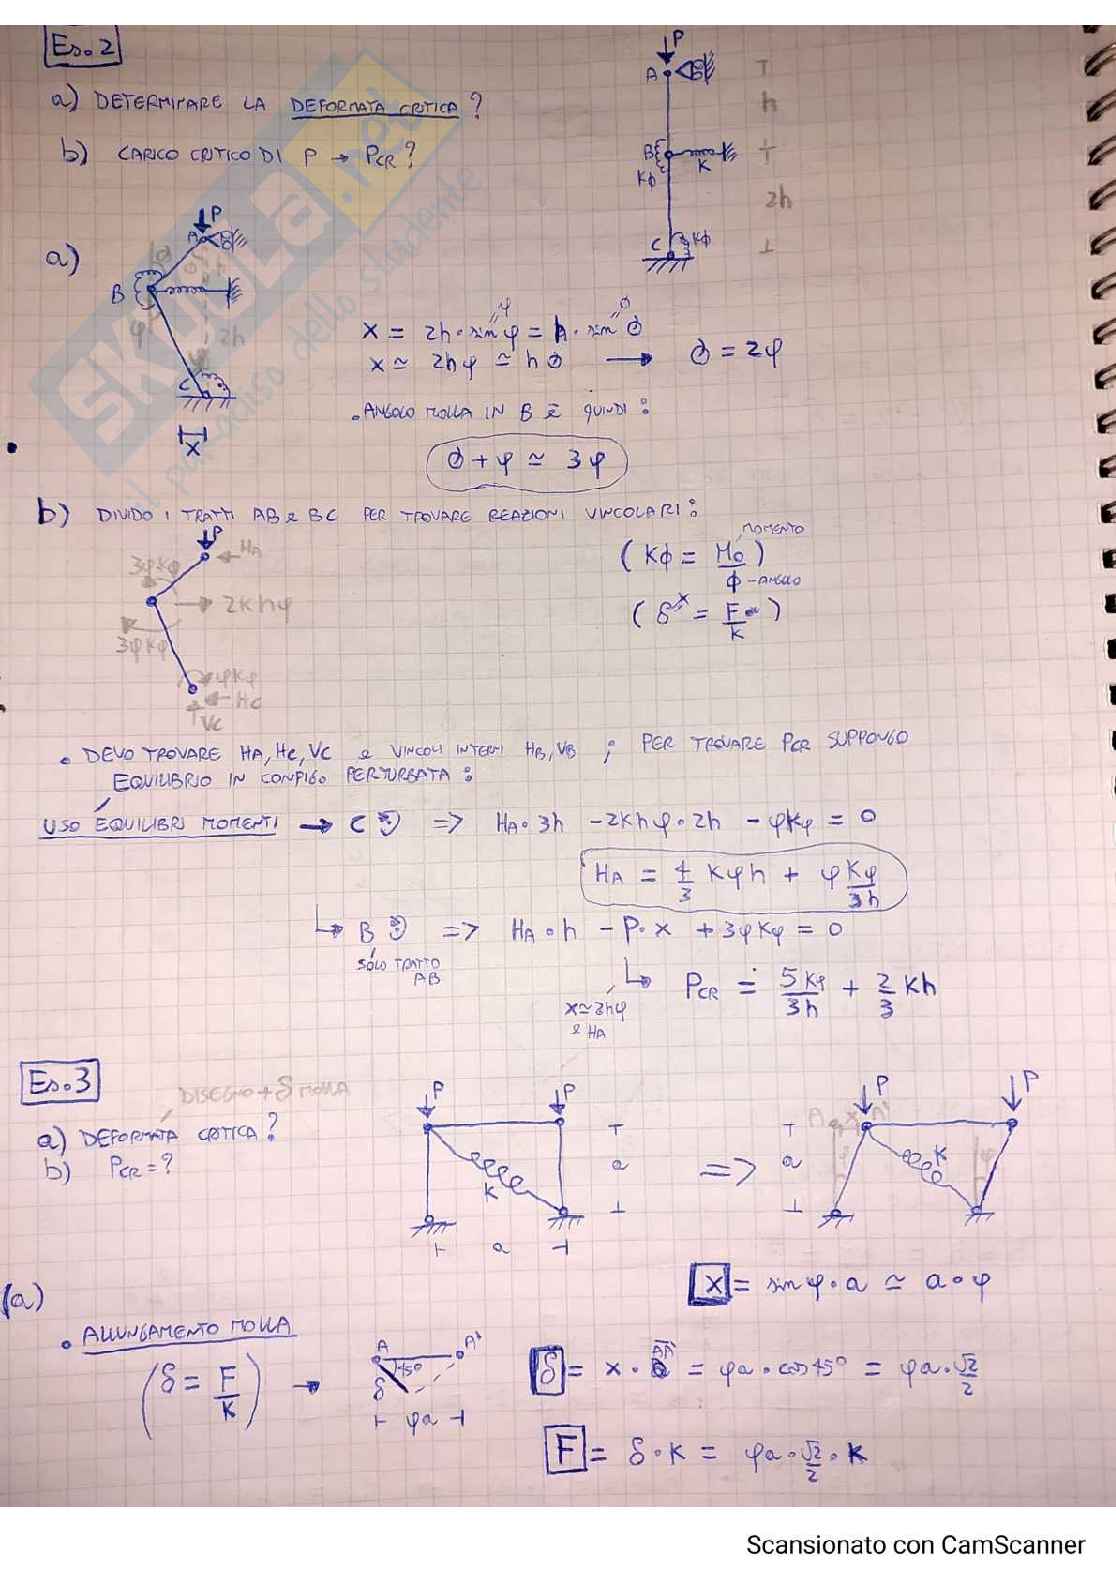 Es.2
a) DETERMINARE LA DEFORMATA CRITICA?
b) CARICO CRITICO DI P → PCR?
P
A
h
B
K
Kφ
2h
C
Kφ
a)
P
A
B
φ
2h
C
x
x = 2h·sinφ = h·sin∅
x ≃ 2hφ ≃ h∅ → ∅ = 2φ
• ANGOLO MOLLA IN B È QUINDI:
∅+φ ≃ 3φ
b) DIVIDO I TRATTI AB e BC PER TROVARE REAZIONI VINCOLARI:
P
HA
3φKφ
2Khφ
3φKφ
φKφ
HC
VC
MOMENTO
(Kφ = M0/φ)
φ-ANGOLO
(δx = F/K)
• DEVO TROVARE HA, HC, VC e VINCOLI INTERNI HB, VB ; PER TROVARE PCR SUPPONGO
EQUILIBRIO IN CONFIGO PERTURBATA:
USO EQUILIBRI MOMENTI → C => HA·3h - 2Khφ·2h - φKφ = 0
HA = 4/3 Kφh + φ Kφ/3h
B => HA·h - P·x + 3φKφ = 0
SOLO TRATTO
AB
x≃2hφ
e HA
PCR = 5Kφ/3h + 2/3 Kh
Es.3
DISEGNO + δ MOLLA
a) DEFORMATA CRITICA?
b) PCR = ?
P P
K
a
a
=>
P P
A x A'
φ
K
φ
a
x = sinφ·a ≃ a·φ
(a)
• ALLUNGAMENTO MOLLA
(δ = F/K) →
A A'
45°
δ
φa
δ = x· = φa·cos45° = φa·√2/2
F = δ·K = φa·√2/2·K
SKUOLA.net
il paradiso dello studente
Scansionato con CamScanner